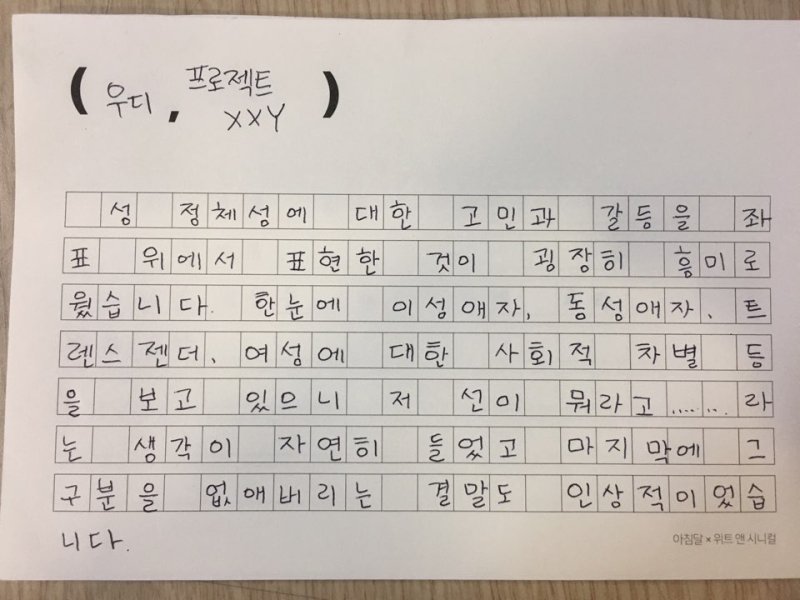 ( 우디, 프로젝트
XXY )
성 정체성에 대한 고민과 갈등을 좌
표 위에서 표현한 것이 굉장히 흥미로
웠습니다. 한눈에 이성애자, 동성애자, 트
렌스젠더, 여성에 대한 사회적 차별 등
을 보고 있으니 저 선이 뭐라고...... 라
는 생각이 자연히 들었고 마지막에 그
구분을 없애버리는 결말도 인상적이었습
니다.
아침달 × 위트 앤 시니컬